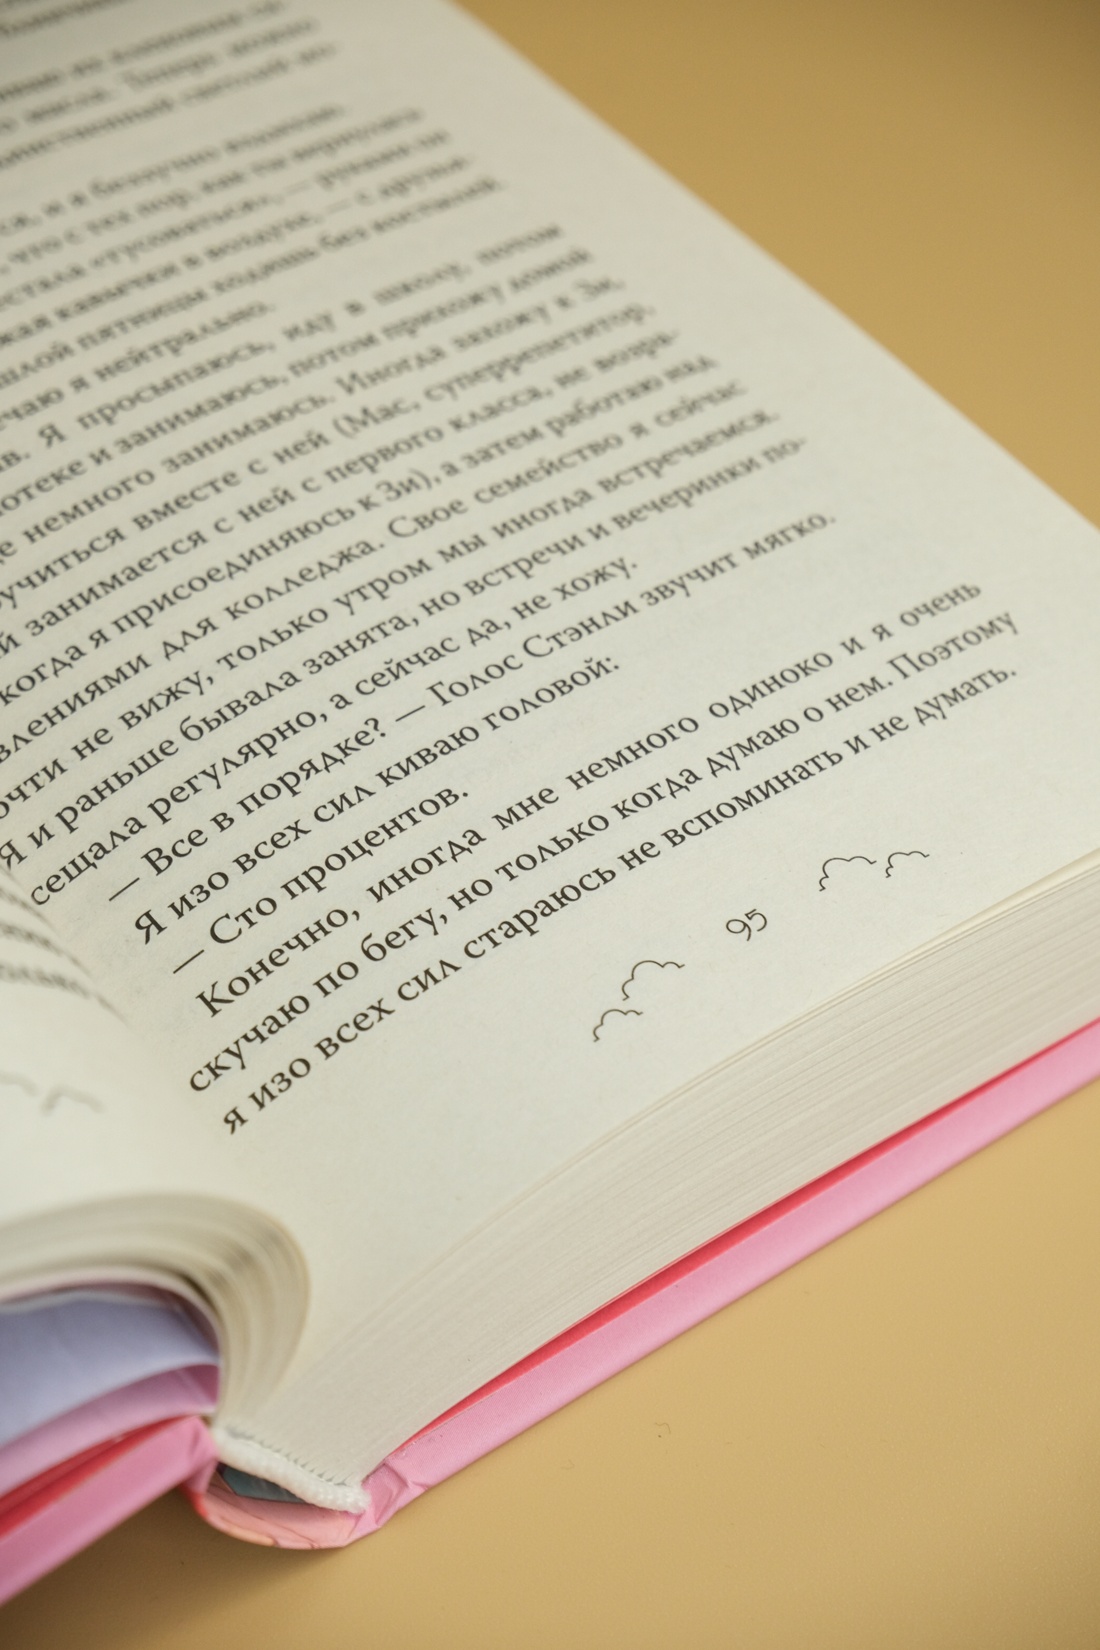 ся, и я беззвучно вздыхаю.
, что с тех пор, как ты вернулась
стала «тусоваться», — руками он
жая кавычки в воздухе, — с друзья-
шлой пятницы ходишь без костылей.
чаю я нейтрально.
ив. Я просыпаюсь, иду в школу, потом
отеке и занимаюсь, потом прихожу домой
ще немного занимаюсь. Иногда захожу к Зи,
учиться вместе с ней (Мас, суперрепетитор,
й занимается с ней с первого класса, не возра-
когда я присоединяюсь к Зи), а затем работаю над
влениями для колледжа. Свое семейство я сейчас
очти не вижу, только утром мы иногда встречаемся.
Я и раньше бывала занята, но встречи и вечеринки по-
сещала регулярно, а сейчас да, не хожу.
— Все в порядке? — Голос Стэнли звучит мягко.
Я изо всех сил киваю головой:
— Сто процентов.
Конечно, иногда мне немного одиноко и я очень
скучаю по бегу, но только когда думаю о нем. Поэтому
я изо всех сил стараюсь не вспоминать и не думать.
95